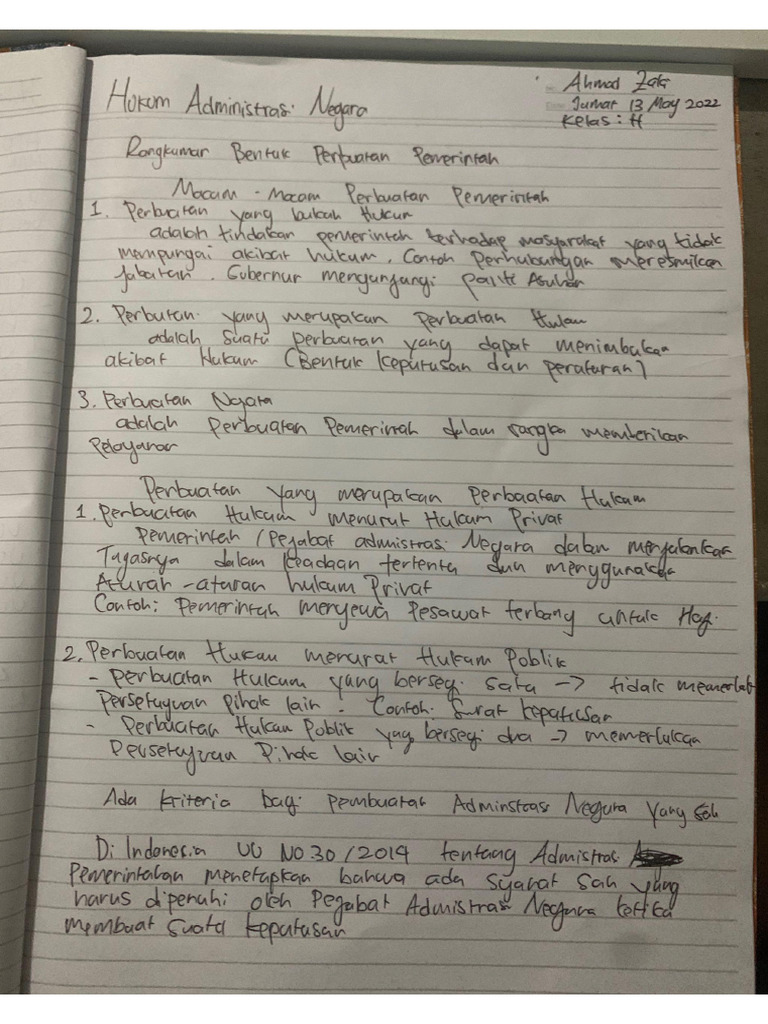 Ahmad Zaki
Hukum Administrasi Negara
Jumat 13 May 2022
Kelas : H
Rangkuman Bentuk Perbuatan Pemerintah
Macam - Macam Perbuatan Pemerintah
1. Perbuatan yang bukan Hukum
adalah tindakan pemerintah terhadap masyarakat yang tidak
mempunyai akibat hukum. Contoh Perhubungan meresmikan
Jabatan. Gubernur mengunjungi panti Asuhan
2. Perbutan yang merupakan Perbuatan Hukum
adalah suatu perbuatan yang dapat menimbukan
akibat Hukum (Bentuk keputusan dan peraturan)
3. Perbuatan Nyata
adalah Perbuatan Pemerintah dalam rangka memberikan
Pelayanan
Perbuatan yang merupakan Perbuatan Hukum
1. Perbuatan Hukum menurut Hukum Privat
Pemerintah (Pejabat administrasi Negara dalam menjalankan
Tugasnya dalam keadaan tertentu dan menggunakan
Aturan - aturan hukum Privat
Contoh: Pemerintah menyewa Pesawat terbang untuk Haji.
2. Perbuatan Hukum menurut Hukum Publik
- Perbuatan Hukum yang bersegi satu -> tidak memerluk
Persetujuan Pihak lain. Contoh. Surat keputusan
- Perbuatan Hukum Publik yang bersegi dua -> memerlukan
Persetujuan Pihak lain
Ada kriteria bagi pembuatan Adminstrasi Negara Yang sah
Di Indonesia UU NO.30/2014 tentang Admistrasi
Pemerintahan menetapkan bahwa ada syarat sah yang
harus dipenuhi oleh Pejabat Administrasi Negara ketika
membuat suatu keputusan